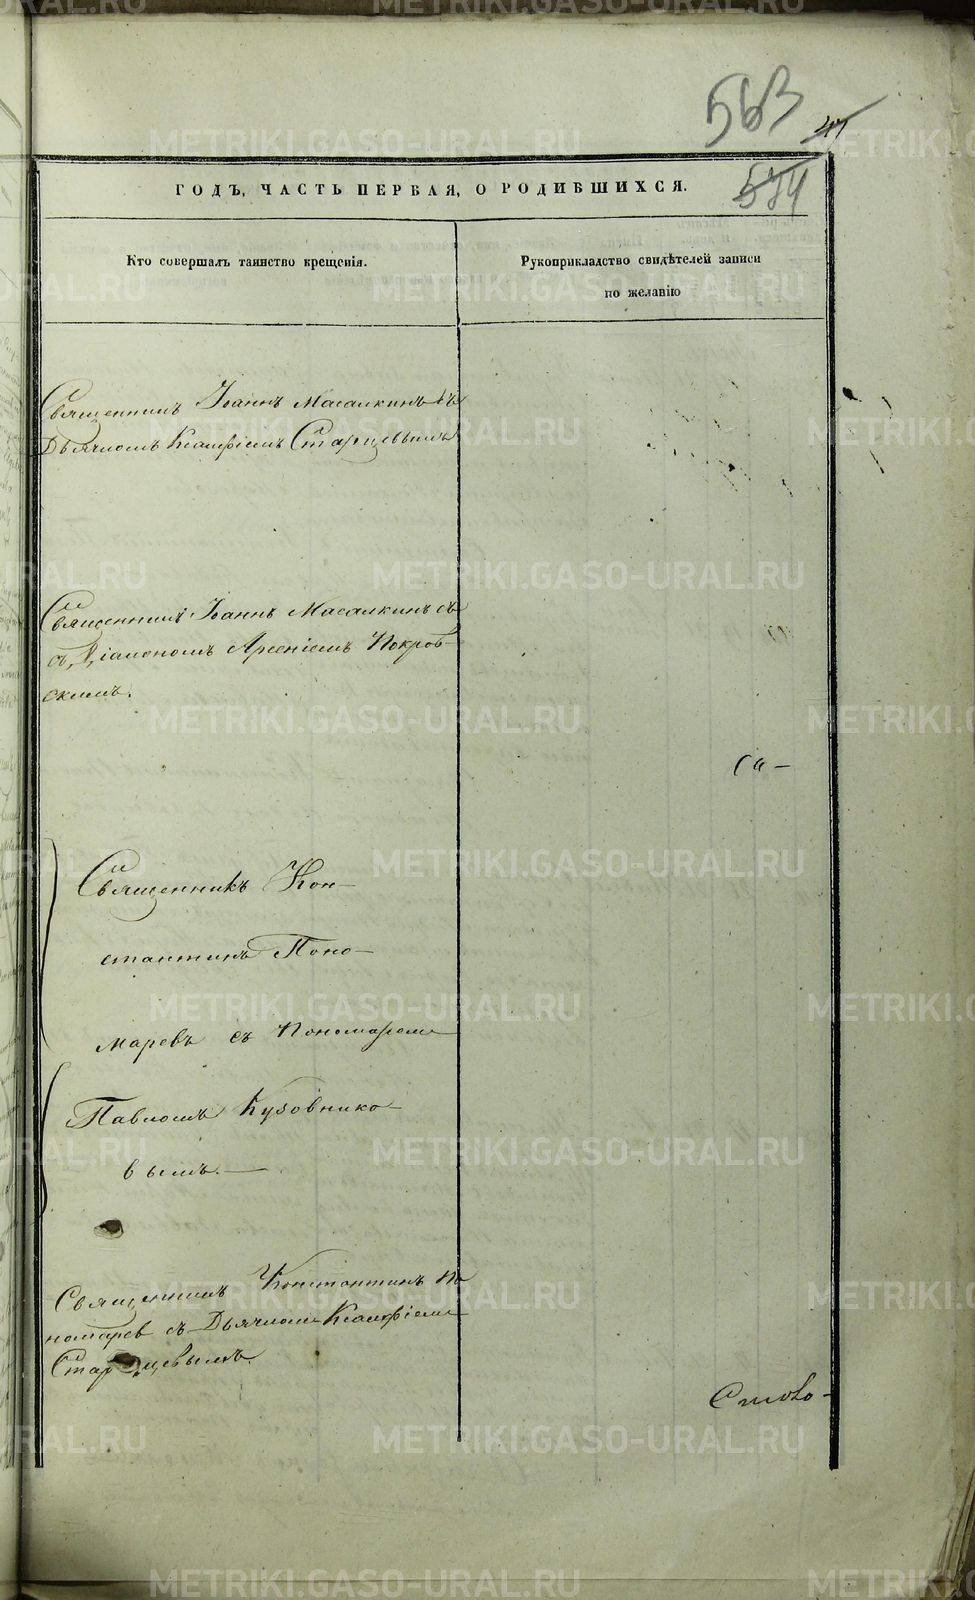 563
47
574
ГОДЪ, ЧАСТЬ ПЕРВАЯ, О РОДИВШИХСЯ.
Кто совершалъ таинство крещенія.
Рукоприкладство свидѣтелей записи
по желанію
Священникъ Іоаннъ Масалкинъ съ
Дьячкомъ Ксанфіемъ Старцевымъ
Священникъ Іоаннъ Масалкинъ съ
съ Діакономъ Арсеніемъ Покров-
скимъ.
Са-
Священникъ Кон-
стантинъ Поно-
маревъ съ Пономаремъ
Павломъ Кузовнико-
вымъ.
Священникъ Константинъ По
номарев съ Дьячкомъ Ксанфіемъ
Старцевымъ.
METRIKI.GASO-URAL.RU